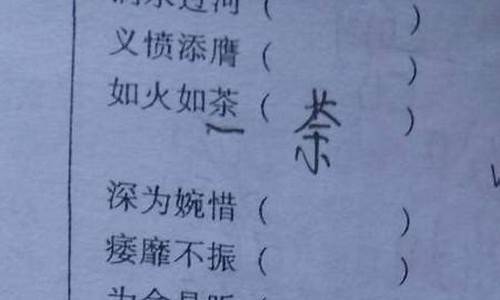 义愤添膺 ( )
如火如茶 ( 荼 )
深为婉惜 ( )
痿靡不振 ( )